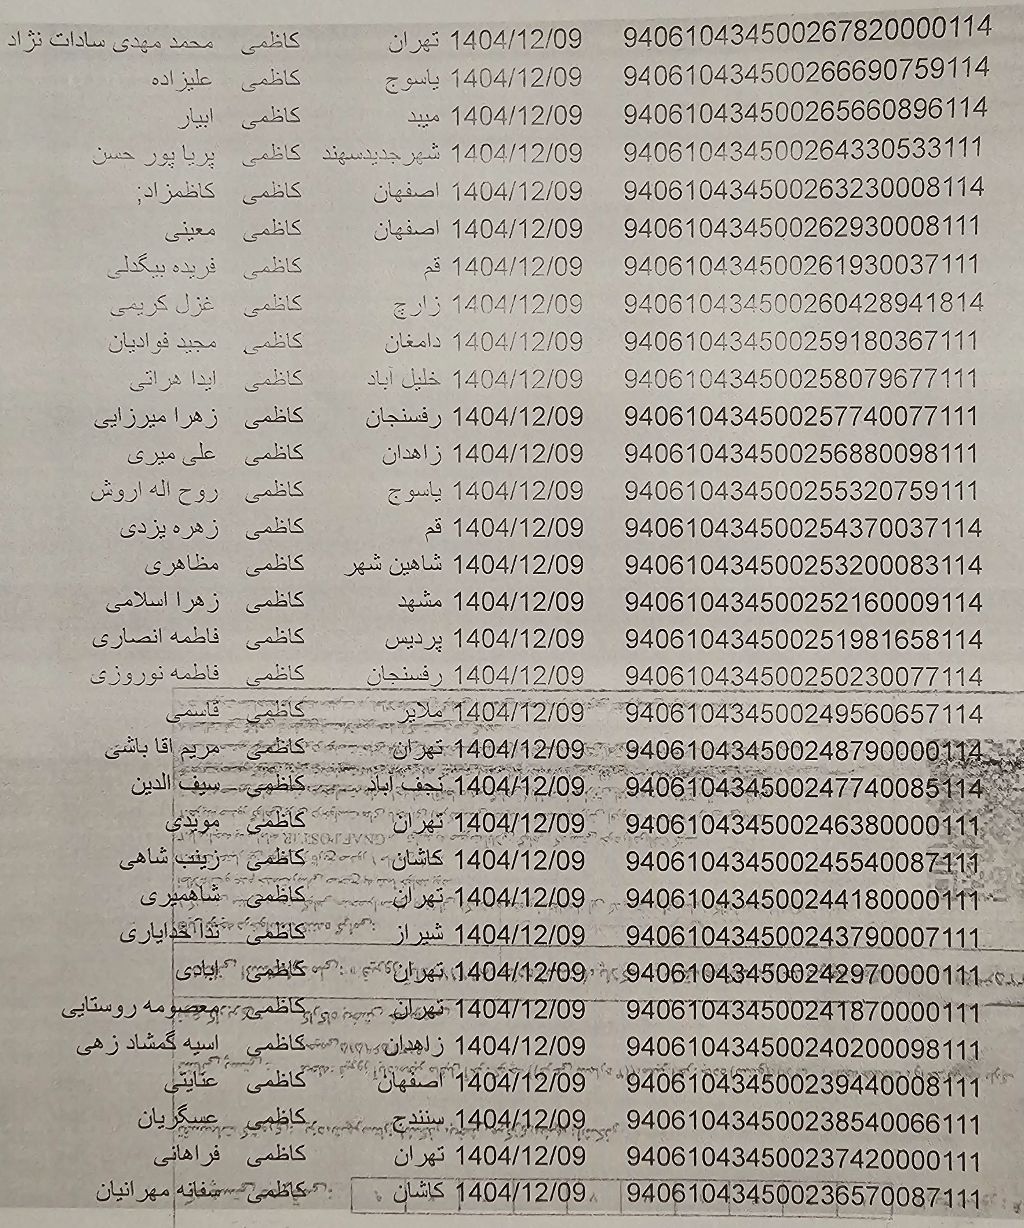 940610434500267820000114 1404/12/09 تهران کاظمی محمد مهدی سادات نژاد
940610434500266690759114 1404/12/09 یاسوج کاظمی علیزاده
940610434500265660896114 1404/12/09 میبد کاظمی ابیار
940610434500264330533111 1404/12/09 شهرجدیدسهند کاظمی پریا پور حسن
940610434500263230008114 1404/12/09 اصفهان کاظمی کاظمزاد;
940610434500262930008111 1404/12/09 اصفهان کاظمی معینی
940610434500261930037111 1404/12/09 قم کاظمی فریده بیگدلی
940610434500260428941814 1404/12/09 زارچ کاظمی غزل کریمی
940610434500259180367111 1404/12/09 دامغان کاظمی مجید فوادیان
940610434500258079677111 1404/12/09 خلیل آباد کاظمی ایدا هراتی
940610434500257740077111 1404/12/09 رفسنجان کاظمی زهرا میرزایی
940610434500256880098111 1404/12/09 زاهدان کاظمی علی میری
940610434500255320759111 1404/12/09 یاسوج کاظمی روح اله اروش
940610434500254370037114 1404/12/09 قم کاظمی زهره یزدی
940610434500253200083114 1404/12/09 شاهین شهر کاظمی مظاهری
940610434500252160009114 1404/12/09 مشهد کاظمی زهرا اسلامی
940610434500251981658114 1404/12/09 پردیس کاظمی فاطمه انصاری
940610434500250230077114 1404/12/09 رفسنجان کاظمی فاطمه نوروزی
940610434500249560657114 1404/12/09 ملایر کاظمی قاسمی
940610434500248790000114 1404/12/09 تهران کاظمی مریم اقا باشی
940610434500247740085114 1404/12/09 نجف آباد کاظمی سیف الدین
940610434500246380000111 1404/12/09 تهران کاظمی موندی
940610434500245540087111 1404/12/09 کاشان کاظمی زینب شاهی
940610434500244180000111 1404/12/09 تهران کاظمی شاهمیری
940610434500243790007111 1404/12/09 شیراز کاظمی ندا خدایاری
940610434500242970000111 1404/12/09 تهران کاظمی ابادی
940610434500241870000111 1404/12/09 تهران کاظمی معصومه روستایی
940610434500240200098111 1404/12/09 زاهدان کاظمی اسیه گمشاد زهی
940610434500239440008111 1404/12/09 اصفهان کاظمی عنایتی
940610434500238540066111 1404/12/09 سنندج کاظمی عسگریان
940610434500237420000111 1404/12/09 تهران کاظمی فراهانی
940610434500236570087111 1404/12/09 کاشان کاظمی سمانه مهرانیان